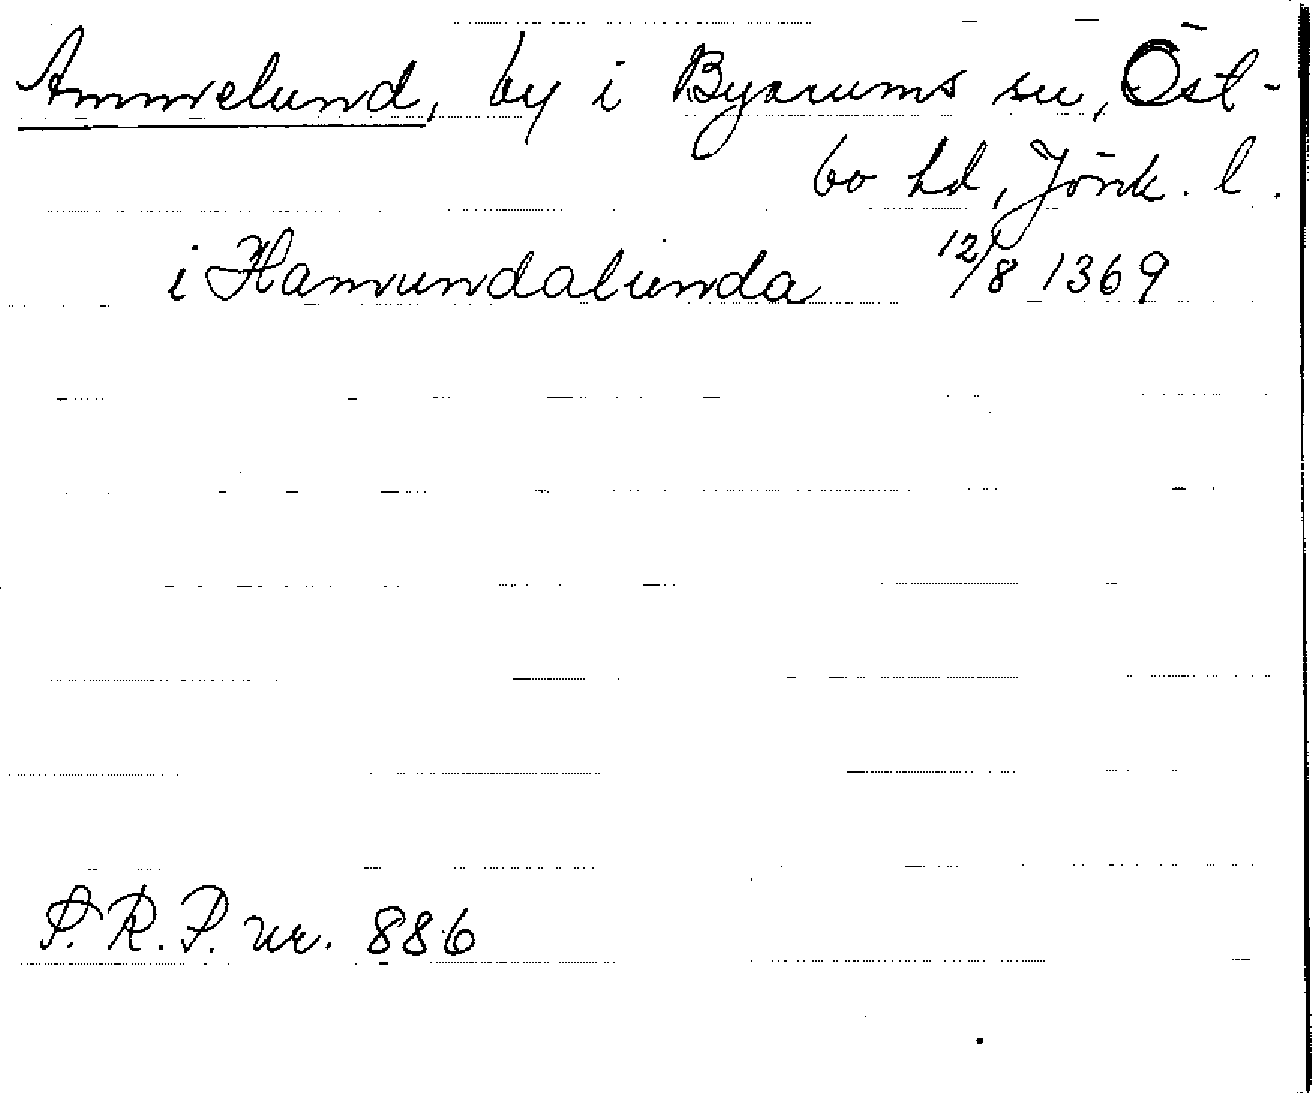 Ammelund, by i Byarums sn, Öst-
bo hd, Jönk. l.
i Hamundalunda 12/8 1369
S.R.P. nr. 886